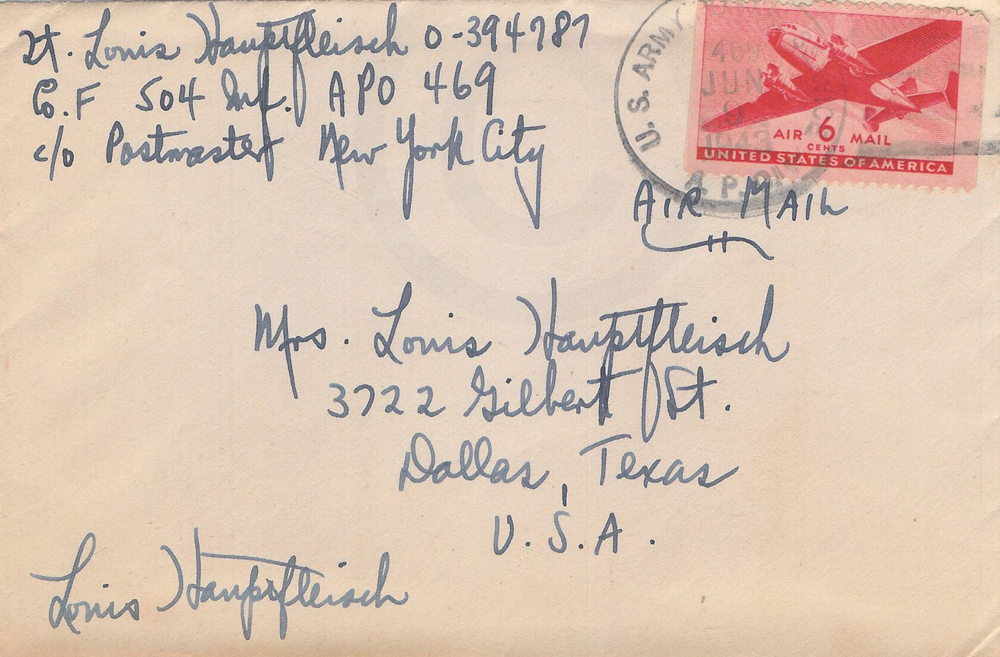 Lt. Louis Hauptfleisch O-394787
Co. F 504 Inf. APO 469
c/o Postmaster New York City
U.S. ARMY
JUN
1943
AIR 6 MAIL
CENTS
UNITED STATES OF AMERICA
AIR MAIL
Mrs. Louis Hauptfleisch
3722 Gilbert St.
Dallas, Texas
U.S.A.
Louis Hauptfleisch